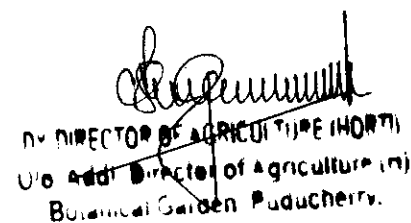 DY DIRECTOR OF AGRICULTURE (HORTI)
O/o Addl Director of Agriculture (H)
Botanical Garden Puducherry.